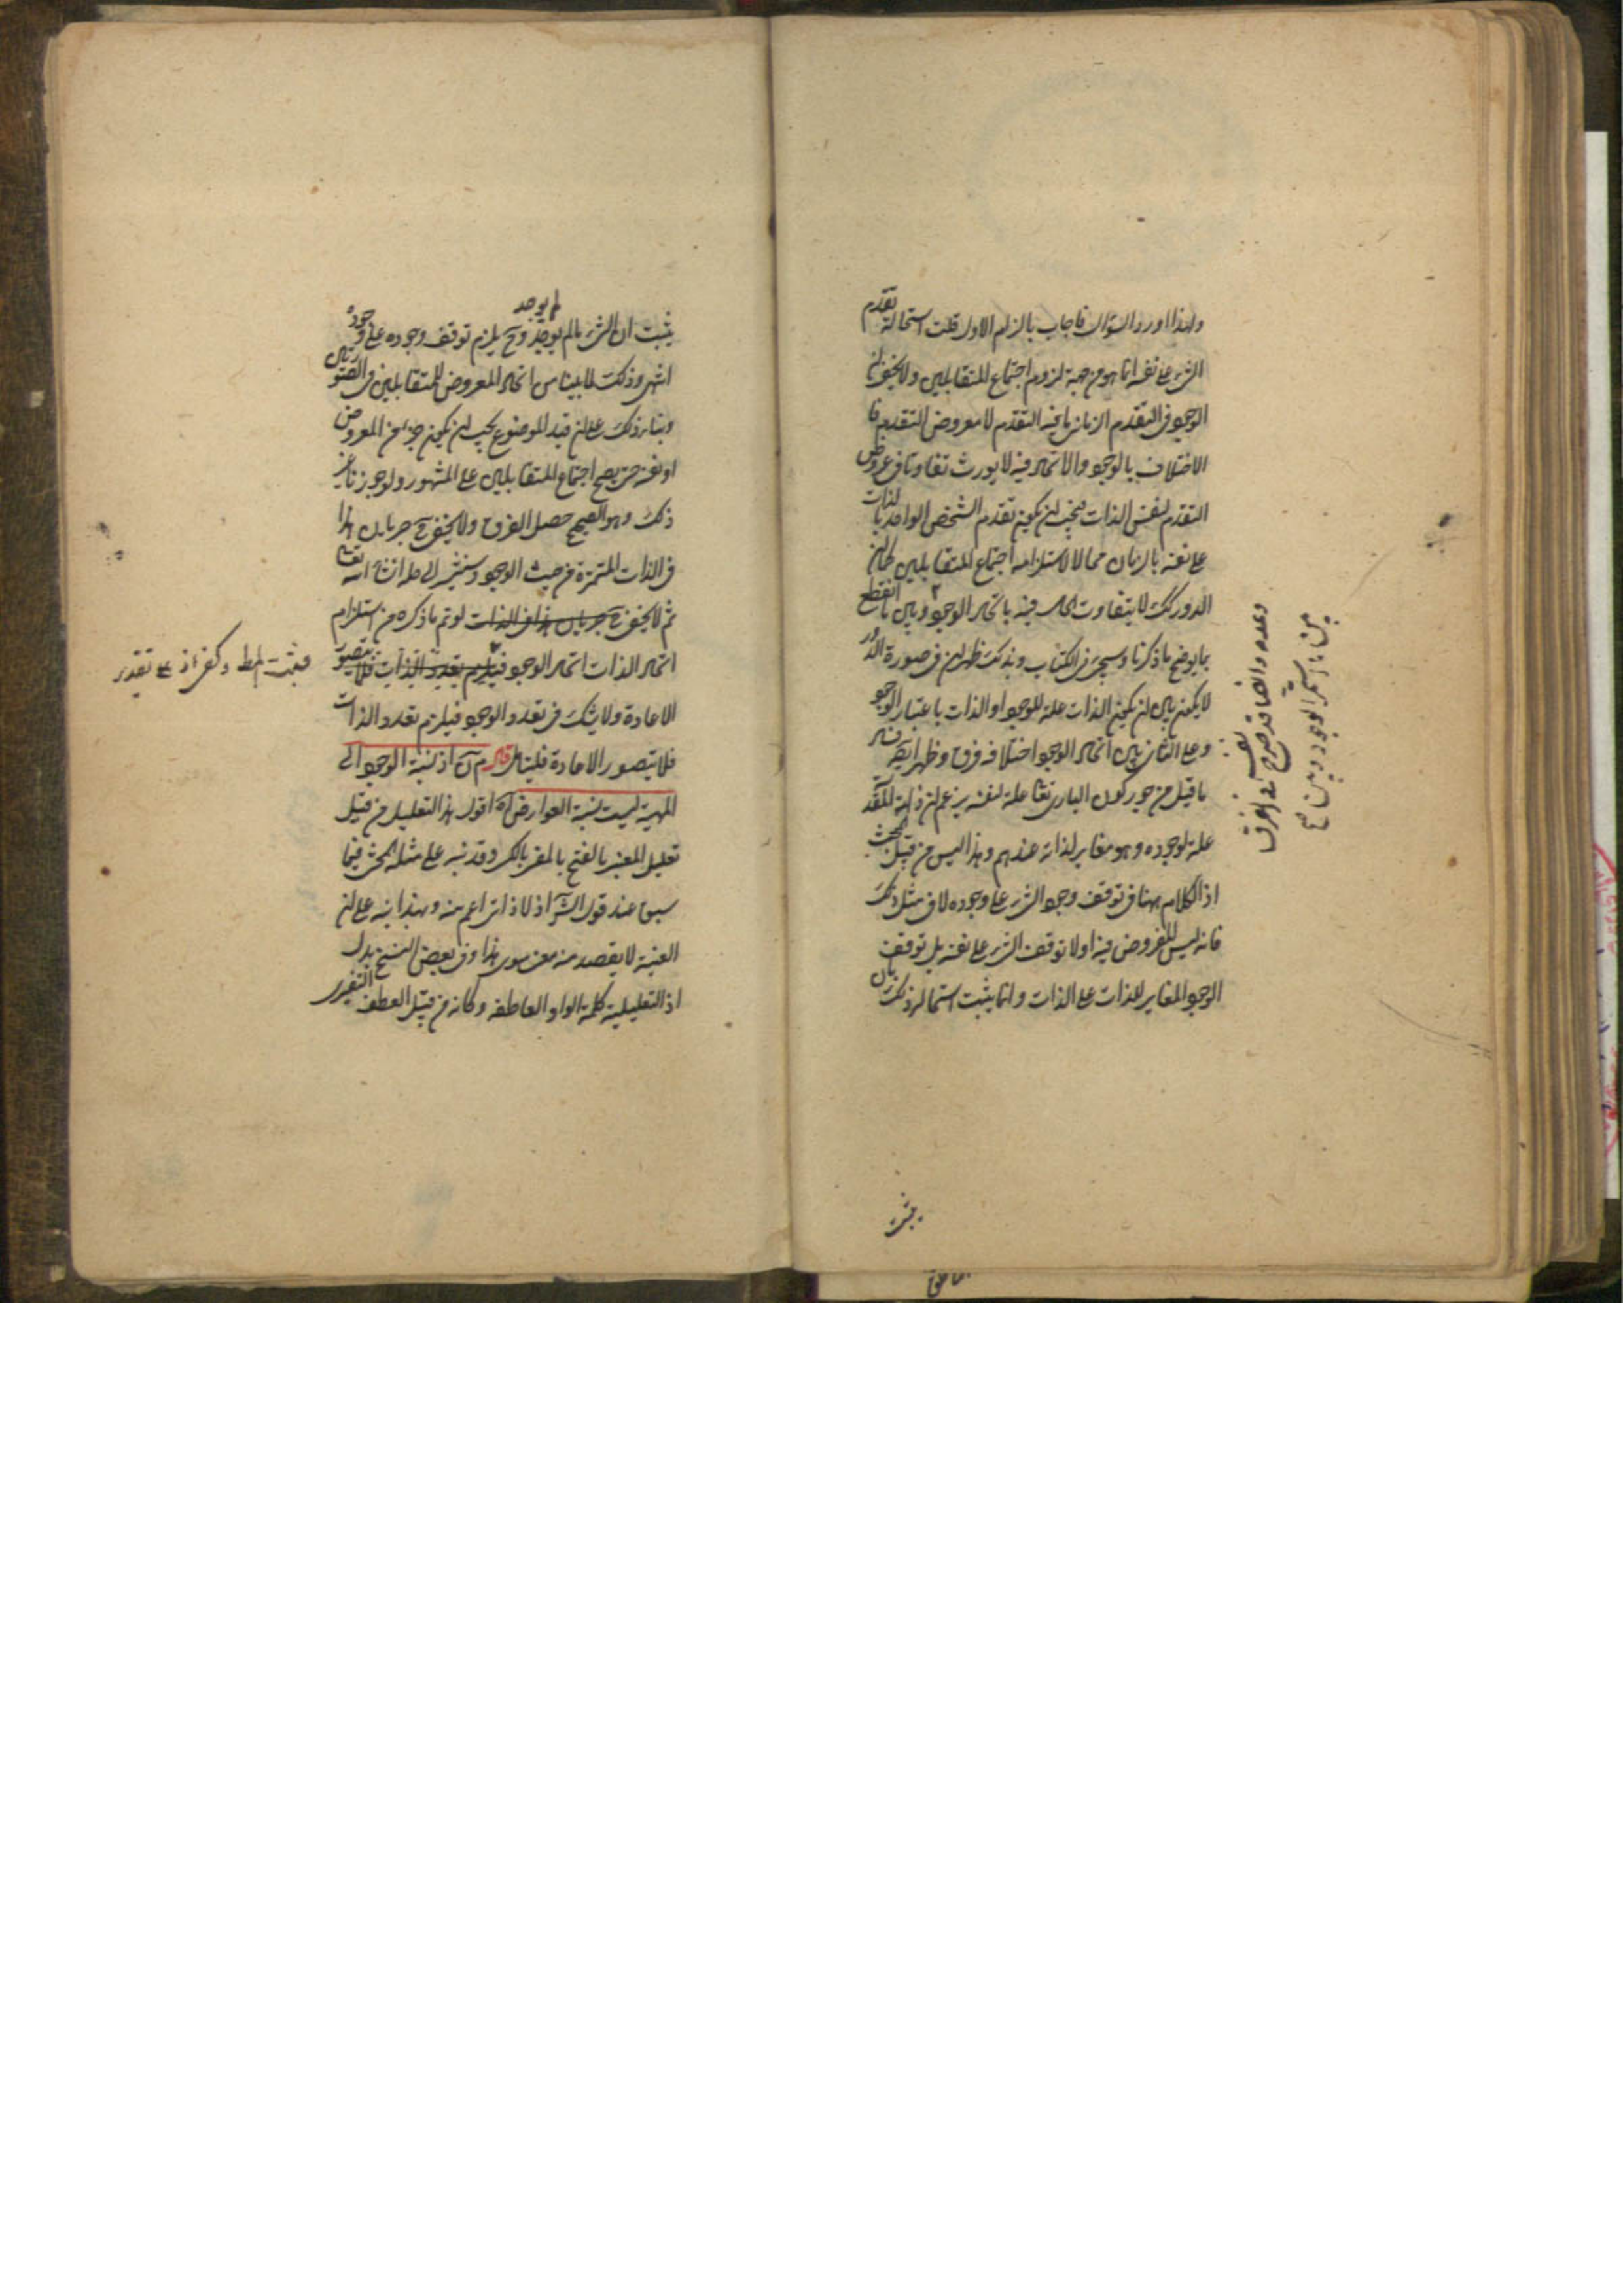 ولهذا اورد السؤال فاجاب بالزام الاول قلت استحالة تقدم
الشئ على نفسه انما هو من جهة لزوم اجتماع المتقابلين ولا يخفى ان
الوجود في التقدم الزماني ما فيه التقدم لا معروض التقدم فا
الاختلاف بالوجود والاتحاد فيه لا يورث تفاوتا في عروض
التقدم لنفس الذات فيجب ان يكون تقدم الشخص الواحد بالذات
على نفسه بالزمان محالا لاستلزامه اجتماع المتقابلين كما ان
الدور كذلك لا يتفاوت الحال فيه باتحاد الوجود وبين ما انقطع
بما يوضح ما ذكرنا وسيجئ في الكتاب وبذلك ظهر ان في صورة الدور
لا يمكن بين ان يكون الذات علة للوجود او الذات باعتبار الوجود
وعلى الثاني بين اتحاد الوجود اختلافه فرق وظهر ايضا فساد
ما قيل من جوز كون الباري تعالى علة لنفسه يزعم ان ذاته المقد
علة لوجوده وهو مغاير لذاته عندهم وهذا ليس من قبيل المبحث
اذ الكلام ههنا في توقف وجود الشئ على وجوده لا في مثل ذلك
فانه ليس المفروض فيه اولا توقف الشئ على نفسه بل توقف
الوجود المغاير للذات على الذات وانما يثبت استحالة ذلك بان
يثبت
وعدمه وايضا قد صرح في الفرق
بين ما استمر الوجود وبين ما
يثبت ان الشئ ما لم يوجد لم يوجد وح يلزم توقف وجوده على وجوده
انتهى وذلك لما بينا من اتحاد المعروض للمتقابلين في الصورتين
وبناء ذلك على ان قيد الموضوع يجب ان يكون جزء من المعروض
او نفسه حتى يصح اجتماع المتقابلين على المشهور ولو جوزنا غير
ذلك وهو الصحيح حصل الفرق ولا يخفى ح جريان هذا
في الذات المتميزة من حيث الوجود وسنشير الى حله انشاء الله تعالى
ثم لا يخفى ح جريان هذا في الذات لو تم ما ذكره من استلزام
اتحاد الذات اتحاد الوجود فيلزم تعدد الذات فلا يتصور
فيثبت المط وكفى اذ على تقدير
الاعادة ولا شك في تعدد الوجود فيلزم تعدد الذات
فلا يتصور الاعادة فليتامل قال م آه اذ نسبة الوجود الى
المهية ليست نسبة العوارض آه اقول هذا التعليل من قبيل
تعليل المفسر بالفتح بالمفسر بالكسر وقد نبه على مثله المحشي فيما
سبق عند قول الش اذ لا ذاتي اعم منه وبهذا نبه على ان
العينية لا يقصد منه معنى سوى هذا وفي بعض النسخ بدل
اذ التعليلية كلمة الواو العاطفة وكانه من قبيل العطف التفسيري